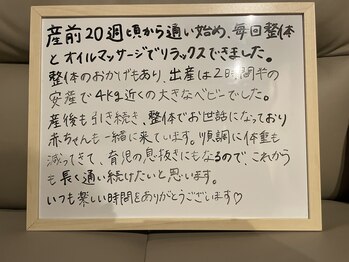 産前20週頃から通い始め、毎回整体
とオイルマッサージでリラックスできました。
整体のおかげもあり、出産は2時間半の
安産で4kg近くの大きなベビーでした。
産後も引き続き、整体でお世話になっており
赤ちゃんも一緒に来ています。順調に体重も
減ってきて、育児の息抜きにもなるので、これから
も長く通い続けたいと思います。
いつも楽しい時間をありがとうございます♡